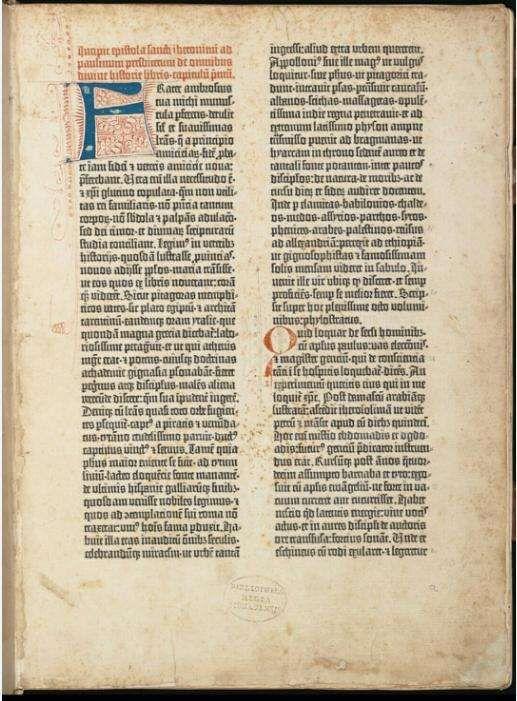 Incipit epistola sancti iheronimi ad
paulinum presbiterum de omnibus
divine historie libris·capitulū pmū.
Frater ambrosius
tua michi munus-
cula pferens·detulit
sił et suavissimas
lrās·q̄ a principio
amiciciaɤ·fidē pba-
te iam fidei et veteris amicicie nova:
pferebant. Vera eni illa necessitudo ē·
et xpi glutino copulata·qm non utili-
tas rei familiaris·nō pncia tantum
corporɤ·nō sbdola et palpās adulacō·
sed dei timor·et divinaɤ scripturarū
studia conciliant. Legim9 in veterib3
historijs·quosdā lustrasse pvincias·
novos adijsse pplos·maria transisse·
ut eos quos ex libris noverant: corā
q3 viderēt. Sicut pitagoras memphi-
ticos vates·sic plato egiptū·et architā
tarentinū·eandemq3 oram ytalie·que
quondā magna grecia dicebať:labo-
riosissime peragravit·et ut qui athenis
mgr erat·et potens·cuiusq3 doctrinas
achademie gignasia psonabāt·fieret
peginus atq3 discipulus·malēs aliena
verecunde discere:qm sua impudent ingerere.
Deniq3 cū lrās quasi toto orbe fugien-
tes psequit·captus a piratis et venunda-
tus·tyrāno crudelissimo paruit·
captivus vinctus et servus. Tamē quia
phus·maior emente se fuit·ad tytum
liviū·lacteo eloquētie fonte manantē·
de ultimis hispanie galliarūq3 finib3·
quosdam venisse nobiles legimus·et
quos ad cōtemplationē sui roma nō
traxerat:unius hois fama pduxit. Ha-
buit illa etas inauditū oīnib3 seculis·
celebrandūq3 miraculū·ut urbē tantā
ingressi:aliud extra urbem quererent.
Appollonius sive ille magus ut vulgus
loquitur·sive phus·ut pitagorici tra-
dunt·intravit psas·ptrāsivit caucasū·
albanos·scithas·massagetas·opulē-
tissima indie regna penetravit·et ad
extremum latissimo physon ampne
trāsmisso pvenit ad bragmanas·ut
hyarcam in throno sedentē aureo et de
tantali fonte potantem·inter paucos
discipulos·de natura·de moribɤ·ac de
cursu dieɤ et sideɤ audiret docentem.
Inde p elamitas·babilonios·chalde-
os·medos·assyrios·parthos·syros·
phenices·arabes·palestinos·reversus
ad allexandriā:perrexit ad ethiopiā·
ut gignosophistas et famosissimam
solis mensam videret in sabulo. In-
venit ille vir ubiq3 qd disceret·et semp
proficiēs·semp se melior fieret. Scrip-
sit super hoc plenissime octo volumi-
nibus:phylostratus.
Quid loquar de seculi hominib3·
cū apłus paulus·vas electōnis·
et magister gentium·qui de conscientia
tāti ī se hospitis loquebat dicēs. An
experimentum queritis eius qui in me
loquit xps. Post damascū arabiāq3
lustratā:ascēdit iherosolimā ut videt
petrū et māsit apud eū diebɤ quindeci.
Hoc eni misterio ebdomadis et ogdo-
adis:futurus gentium p̄dicator instruen-
dus erat. Rursūq3 post ānos quatuor-
decim assumpto barnaba et tyto:expo-
suit cū aplis evāgelium·ne forte in va-
cuum curreret aut cucurrisset. Habet
nescio qd latentis energie:vive vocis
actus·et in aures discipli de auctoris
ore transfusa:forcius sonat. Unde et
eschineus cū rodi exularet·et legeretur
BIBLIOTHECA
REGIA
MONACENSIS